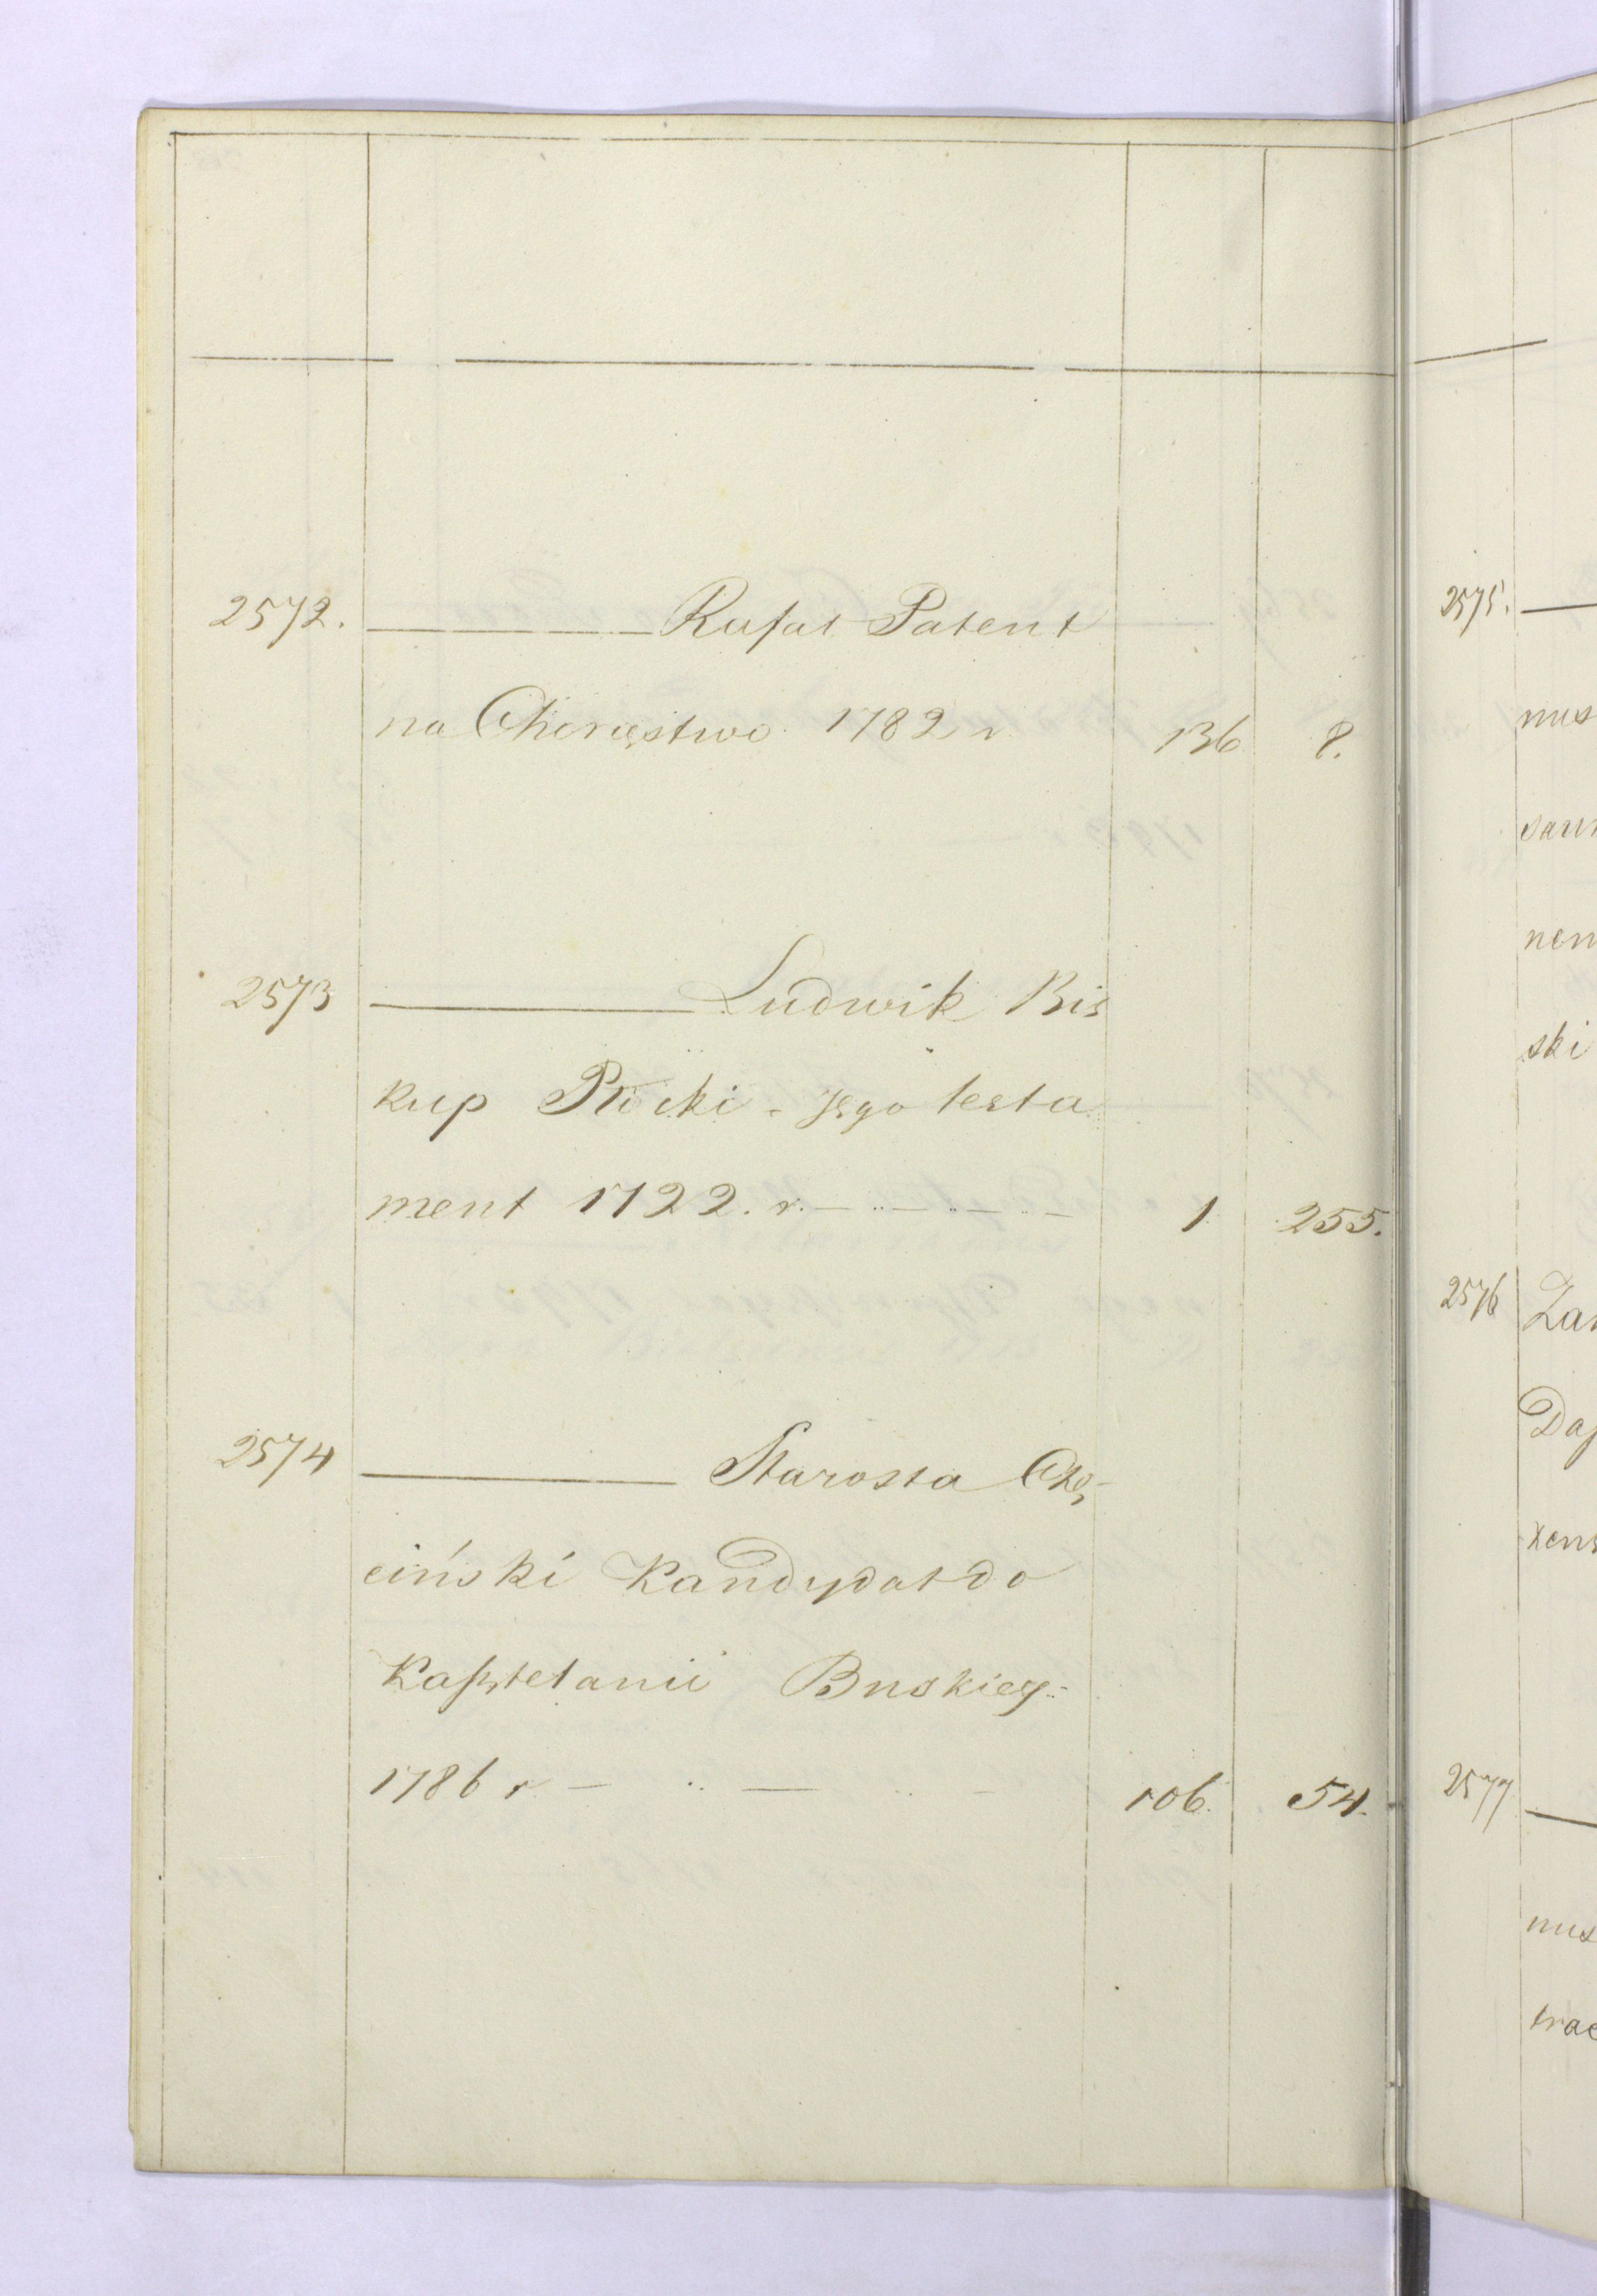 2572. ——— Rafał Patent
na Chorąstwo 1782 r 136 8.
2573 ——— Ludwik Bis
kup Płocki - jego testa
ment 1722. r. — .. — .. — .. — 1 255.
2574 ——— Starosta Chę-
ciński Kandydat do
Kasztelanii Buskiey
1786 r — .. — .. — 106. 54.
2575. —
nus
nem
ski
2576
2577 —
nus